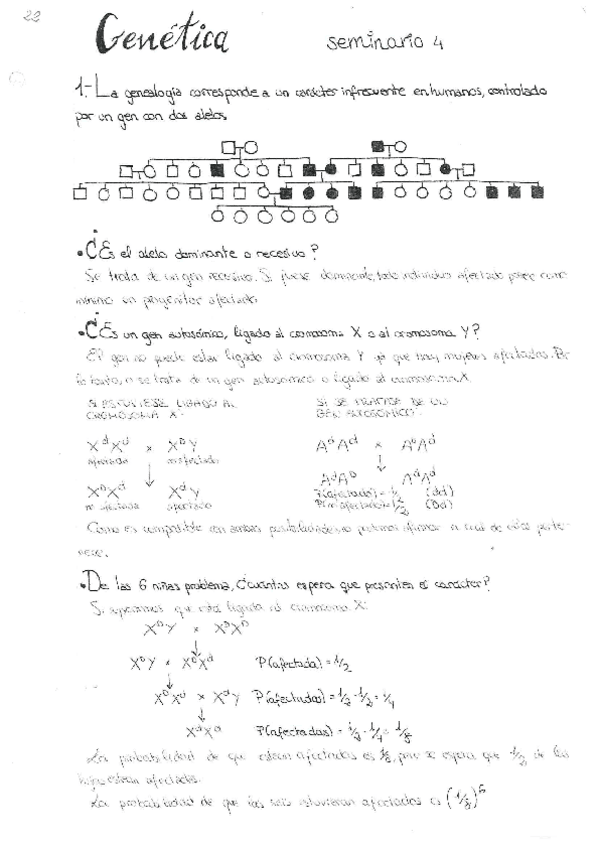 22
Genética seminario 4
1.- La genealogía corresponde a un carácter infrecuente en humanos, controlado
por un gen con dos alelos
• ¿Es el alelo dominante o recesivo?
Se trata de un gen recesivo. Si fuese dominante, todo individuo afectado posee como
mínimo un progenitor afectado
• ¿Es un gen autosómico, ligado al cromosoma X o al cromosoma Y?
El gen no puede estar ligado al cromosoma Y ya que hay mujeres afectadas. Por
lo tanto, o se trata de un gen autosómico o ligado al cromosoma X.
SI ESTUVIESE LIGADO AL
CROMOSOMA X:
SI SE TRATASE DE UN
GEN AUTOSÓMICO:
X^d X^d x X^D Y
afectada no afectado
X^D X^d X^d Y
no afectada afectado
A^d A^d x A^D A^d
A^d A^D A^d A^d
P(afectado) = 1/2 (dd)
P(no afectado) = 1/2 (Dd)
Como es compatible con ambas posibilidades, no podemos afirmar a cual de ellos perte-
nece.
• De las 6 niñas problema, ¿cuántas espera que presenten el carácter?
Si suponemos que está ligado al cromosoma X:
X^D Y x X^D X^D
X^D Y x X^D X^d P(afectada) = 1/2
X^D X^d x X^d Y P(afectadas) = 1/2 · 1/2 = 1/4
X^d X^d P(afectadas) = 1/2 · 1/4 = 1/8
La probabilidad de que estean afectadas es 1/8, pero se espera que 1/2 de las
hijas estean afectadas.
La probabilidad de que las seis estuvieran afectadas es (1/8)^6